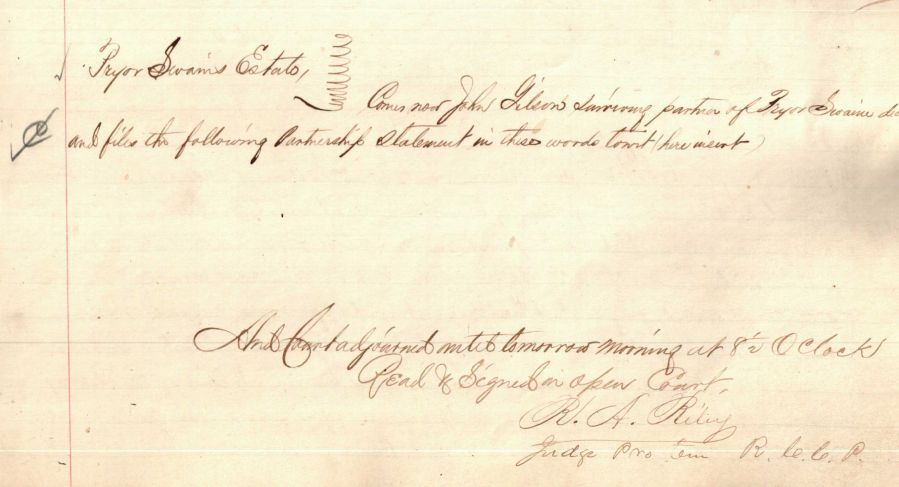 Pryor Swains Estate,
Comes now John Gilson surviving partner of Pryor Swain
and files the following Partnership statement in these words towit (here insert)
And Court adjourned until tomorrow morning at 8½ O Clock
Read & Signed in open Court,
R. A. Riley
Judge Pro tem R. C. C. P.